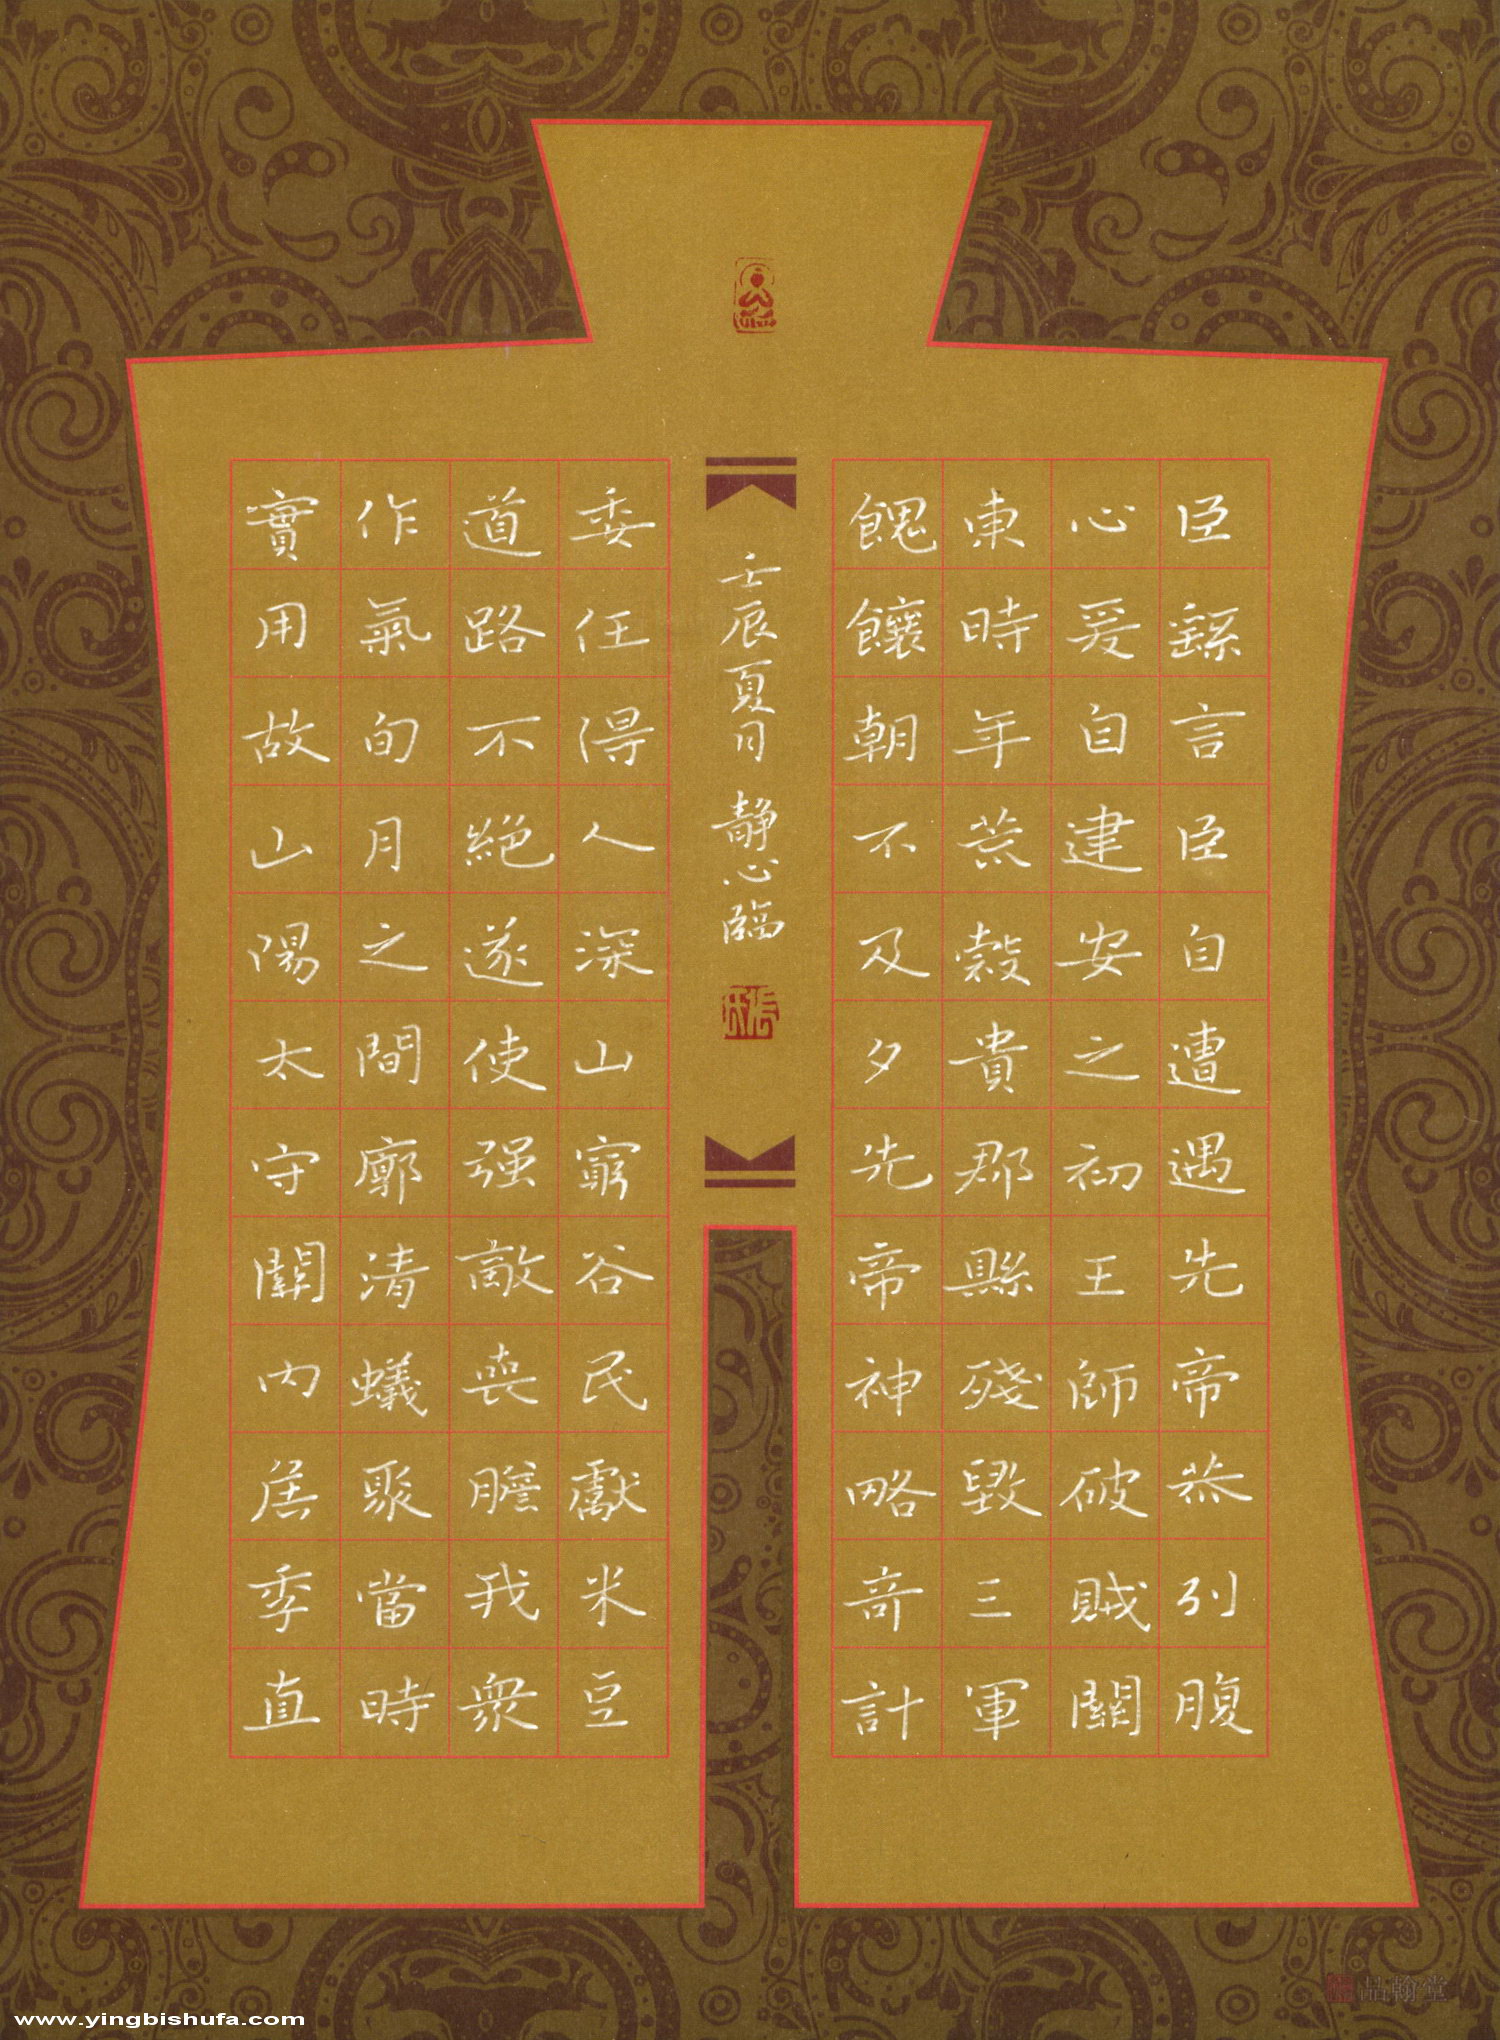 臣繇言臣自遭遇先帝忝列腹
心爰自建安之初王師破賊關
東時年荒穀貴郡縣殘毀三軍
餽饟朝不及夕先帝神略奇計
委任得人深山窮谷民獻米豆
道路不絕遂使强敵喪膽我衆
作氣旬月之間廓清蟻聚當時
實用故山陽太守關內居季直
壬辰夏日 靜心臨
品翰堂
www.yingbishufa.com